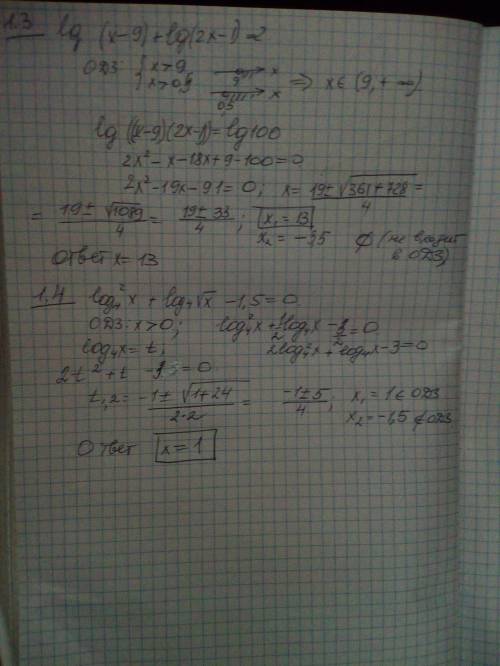 1.3 lg (x-9)+lg(2x-1)=2
ОДЗ: { x>9 x>0,5 9 x 0,5 x => x∈(9,+∞)
lg((x-9)(2x-1))=lg100
2x²-x-18x+9-100=0
2x²-19x-91=0; x= (19±√(361+728))/4 =
= (19±√1089)/4 = (19±33)/4; x₁=13 x₂=-3,5 ∅ (не входит в ОДЗ)
Ответ x=13
1.4 log₄²x+log₄√x-1,5=0
ОДЗ: x>0; log₄²x+1/2log₄x-3/2=0
log₄x=t; 2log₄²x+log₄x-3=0
2t²+t-3=0
t₁,₂= (-1±√(1+24))/(2·2) = (-1±5)/4; x₁=1∈ОДЗ x₂=-1,5∉ОДЗ
Ответ x=1